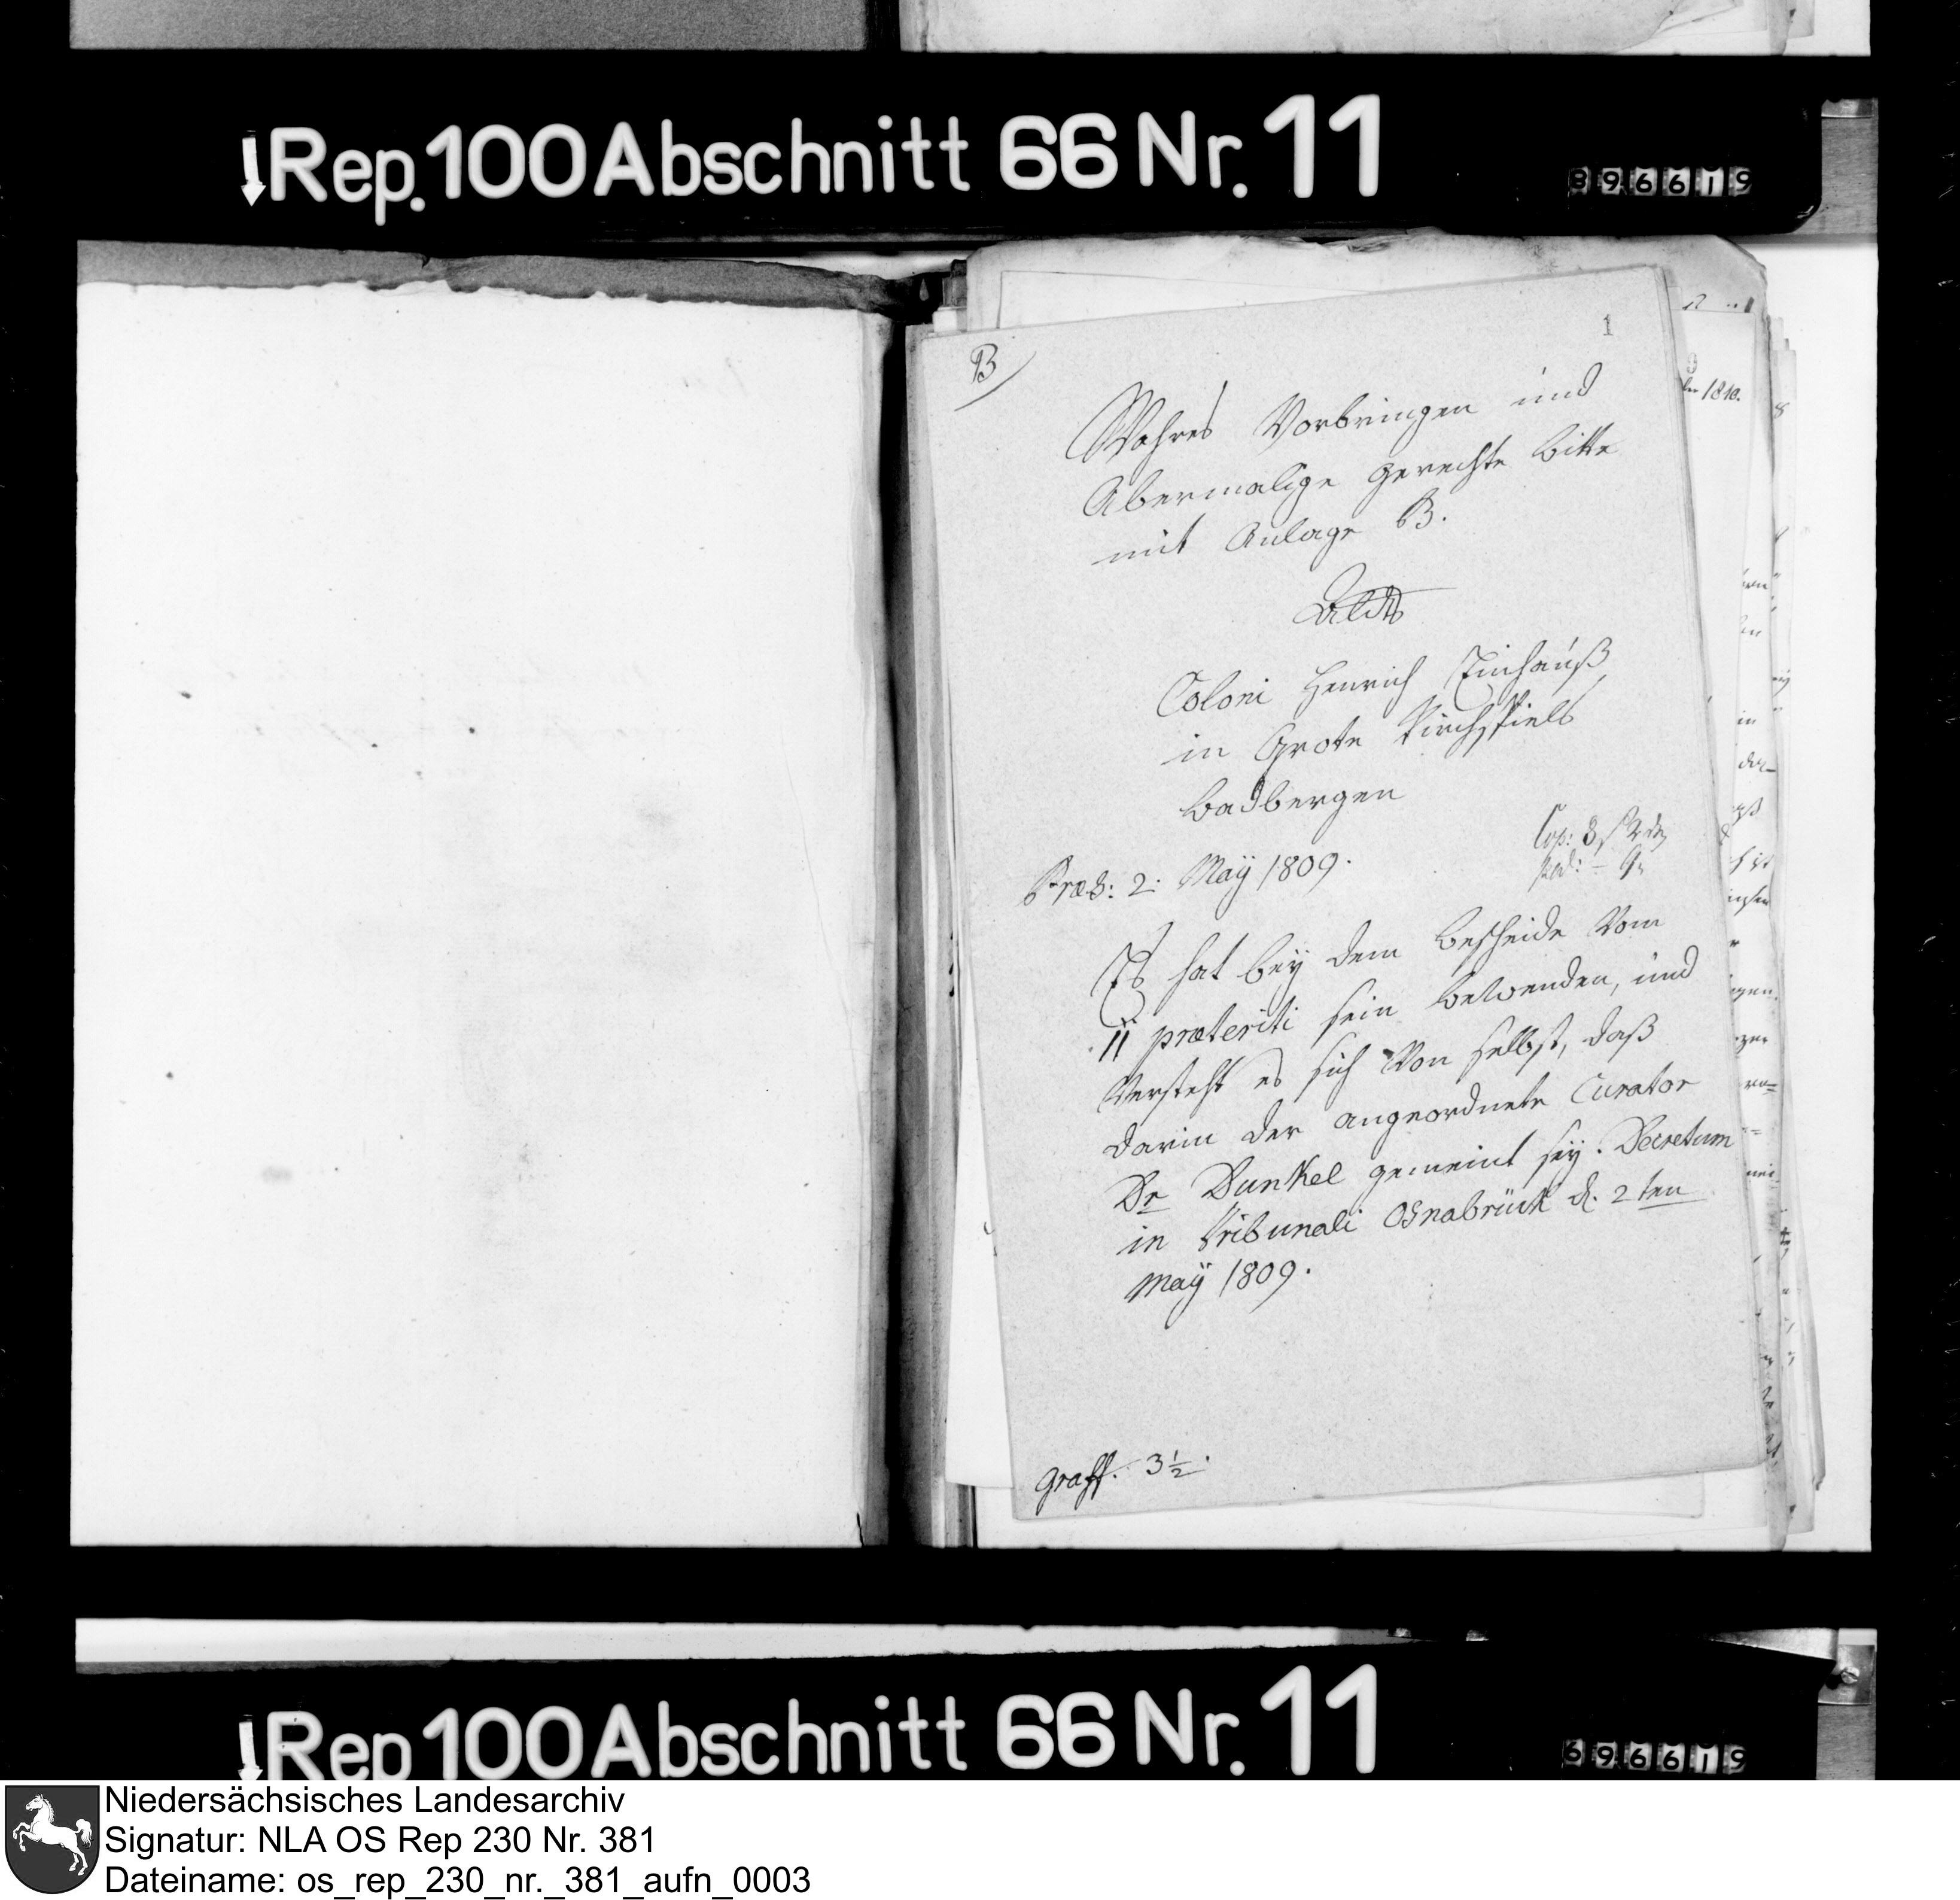 Rep. 100 Abschnitt 66 Nr. 11
896619
1
B
Wahres Vorbringen und
Abermalige gerechte Bitte
mit Anlage B.
Coloni Henrich Einhauß
in Grote Kirchspiels
Badbergen
Præs: 2: Maÿ 1809.
Cop: 3
Es hat beÿ dem Bescheide vom
11 præteriti sein Bewenden, und
versteht es sich von selbst, daß
darin der angeordnete Curator
Dr Dunkel gemeint seÿ. Decretum
in Tribunali Osnabrück d. 2ten
Maÿ 1809.
graff. 3 ½.
1810.
Rep 100 Abschnitt 66 Nr. 11
696619
Niedersächsisches Landesarchiv
Signatur: NLA OS Rep 230 Nr. 381
Dateiname: os_rep_230_nr._381_aufn_0003